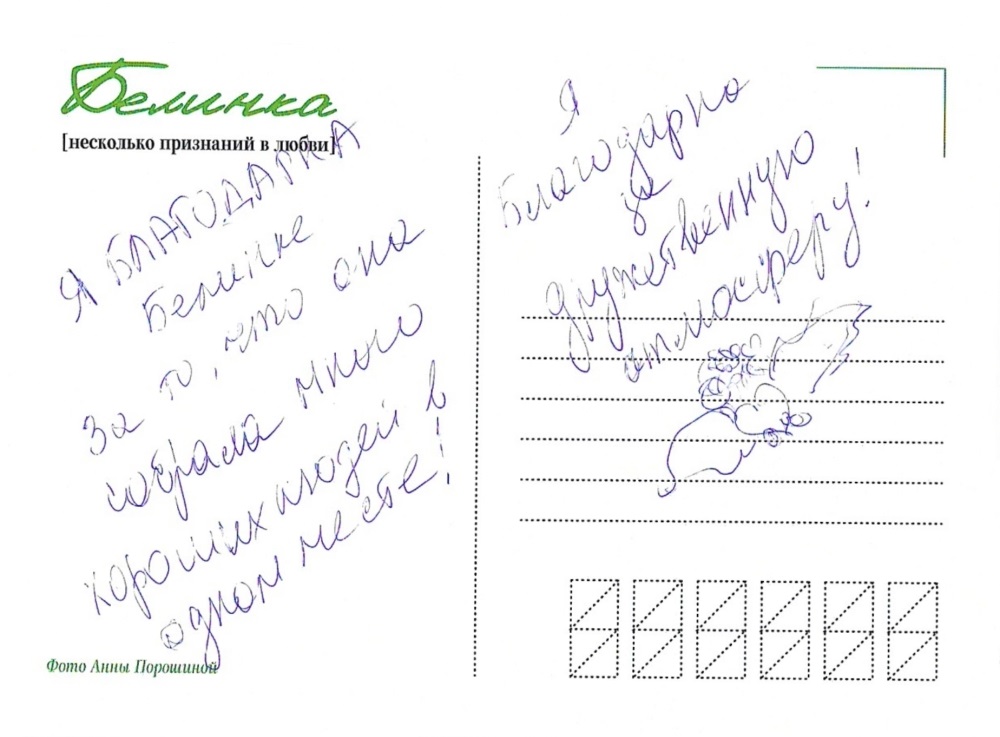 Белинка
[несколько признаний в любви]
Я БЛАГОДАРНА
Белинке
За то, что она
собрала много
хороших людей в
одном месте!
Фото Анны Порошиной
Я
Благодарна
за
дружественную
атмосферу!